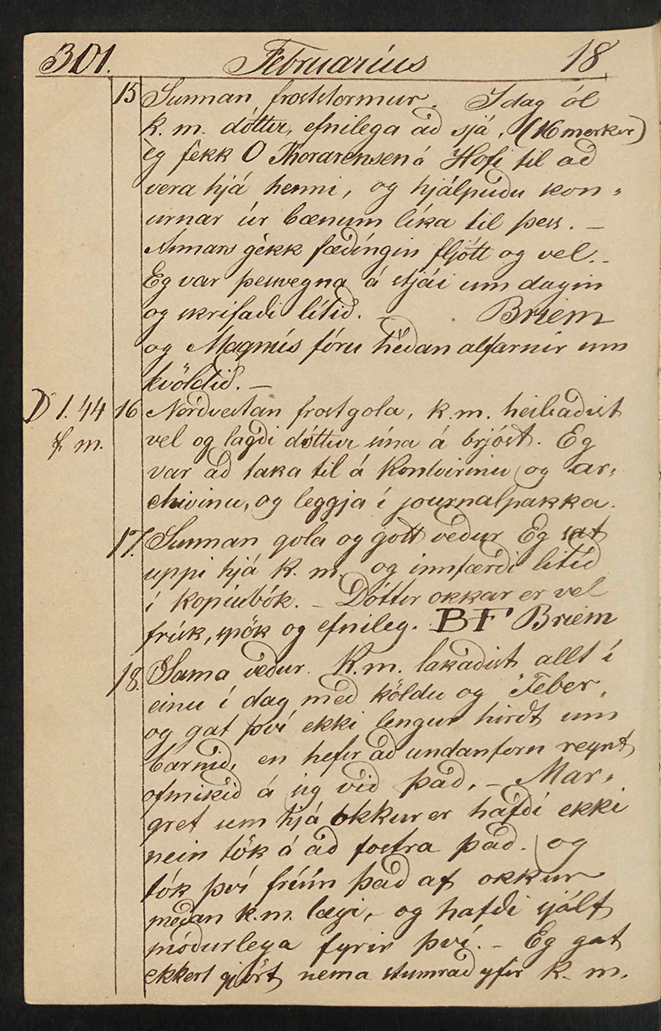 301. Februaríus 18
15 Sunnan froststormur. I dag ól
k. m. dóttir, efnilega að sjá, (16 merkur)
Eg fékk O Thorarensen á Hofi til að
vera hjá henni, og hjálpuðu kon-
urnar úr bænum líka til þess. –
Annars gékk fæðíngin fljótt og vel. –
Eg var þessvegna á stjái um dagin
og skrifaði lítið. – Briem
og Magnús fóru héðan alfarnir um
kvöldið. –
D 1. 44 16 Norðvestan frostgola, k. m. heilsaðist
f m. vel og lagði dóttur sína á brjóst. Eg
var að taka til á Kontórinu og ar-
chivinu, og leggja í journalpakka.
17. Sunnan gola og gott veður Eg sat
uppi hjá k. m. og innfærði lítið
í kopíubók. – Dóttir okkar er vel
frísk, spök og efnileg. BF Briem
18. Sama veður. K. m. lakaðist allt í
einu í dag með köldu og Feber,
og gat því ekki lengur hirdt um
barnið, en hefir að undanförn reynt
ofmikið á sig við það. – Mar-
gret sem hjá okkur er hafði ekki
nein tök á að fostra það. og
tók því frúin það af okkur
meðan k. m. lægi, og hafði sjálf
móðurlega fyrir því. – Eg gat
ekkert gjört nema stumrað yfir k. m.